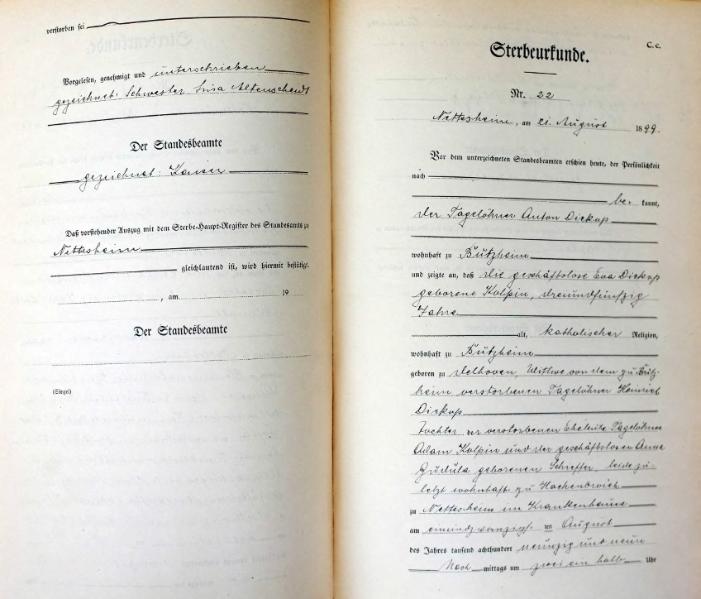 verstorben sei
Vorgelesen, genehmigt und unterschrieben
gezeichnet: Schwester Luisa Altenscheidt
Der Standesbeamte
gezeichnet: Kaiser
Daß vorstehender Auszug mit dem Sterbe-Haupt-Register des Standesamts zu
Nettesheim
gleichlautend ist, wird hiermit bestätigt.
, am 19
Der Standesbeamte
(Siegel)
C.c.
Sterbeurkunde.
Nr. 22
Nettesheim, am 21 August 1899.
Vor dem unterzeichneten Standesbeamten erschien heute, der Persönlichkeit
nach
be- kannt,
der Tagelöhner Anton Dickop
wohnhaft zu Bützheim
und zeigte an, daß die geschäftslose Eva Dickop
geborene Kolpin, dreiundfünfzig
Jahre
alt, katholischer Religion,
wohnhaft zu Bützheim
geboren zu Delhoven, Wittwe von dem zu Bütz-
heim verstorbenen Tagelöhner Heinrich
Dickop
Tochter der verstorbenen Eheleute Tagelöhner
Adam Kolpin und der geschäftslosen Anna
Gudula geborenen Schreffer, beide zu-
letzt wohnhaft zu Hackenbroich
zu Nettesheim im Krankenhause
am einundzwanzigst en August
des Jahres tausend achthundert neunzig und neun
Nach mittags um zwei ein halb Uhr